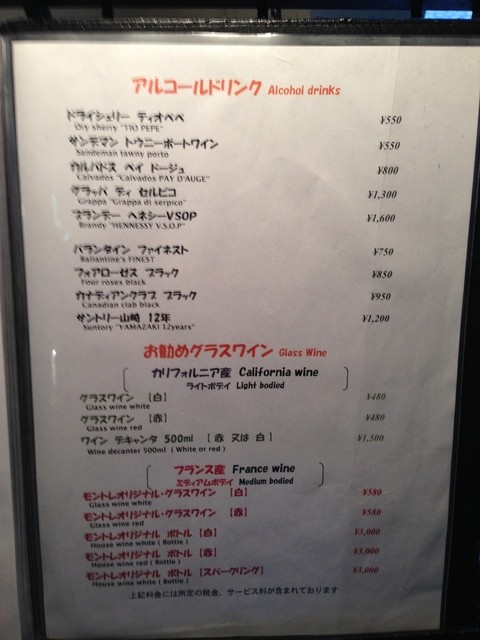 アルコールドリンク Alcohol drinks
ドライシェリー ティオペペ ¥550
Dry sherry "TIO PEPE"
サンデマン トウニーポートワイン ¥550
Sandeman tawny porto
カルバドス ペイ ドージュ ¥800
Calvados "Calvados PAY D'AUGE"
グラッパ ディ セルピコ ¥1,300
Grappa "Grappa di serpico"
ブランデー ヘネシーVSOP ¥1,600
Brandy "HENNESSY V.S.O.P"
バランタイン ファイネスト ¥750
Ballantine's FINEST
フォアローゼス ブラック ¥850
Four roses black
カナディアンクラブ ブラック ¥950
Canadian club black
サントリー山崎 12年 ¥1,200
Suntory "YAMAZAKI 12years"
お勧めグラスワイン Glass Wine
カリフォルニア産 California wine
ライトボディ Light bodied
グラスワイン 【白】 ¥480
Glass wine white
グラスワイン 【赤】 ¥480
Glass wine red
ワイン デキャンタ 500ml 【 赤 又は 白 】 ¥1,500
Wine decanter 500ml ( White or red )
フランス産 France wine
ミディアムボディ Medium bodied
モントレオリジナル・グラスワイン 【白】 ¥580
Glass wine white
モントレオリジナル・グラスワイン 【赤】 ¥580
Glass wine red
モントレオリジナル ボトル【白】 ¥3,000
House wine white ( Bottle )
モントレオリジナル ボトル【赤】 ¥3,000
House wine red ( Bottle )
モントレオリジナル ボトル【スパークリング】 ¥3,000
House wine white ( Bottle )
上記料金には所定の税金、サービス料が含まれております